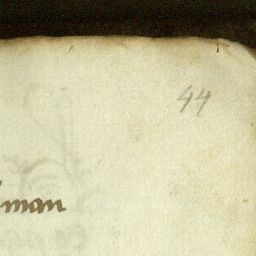 44
man